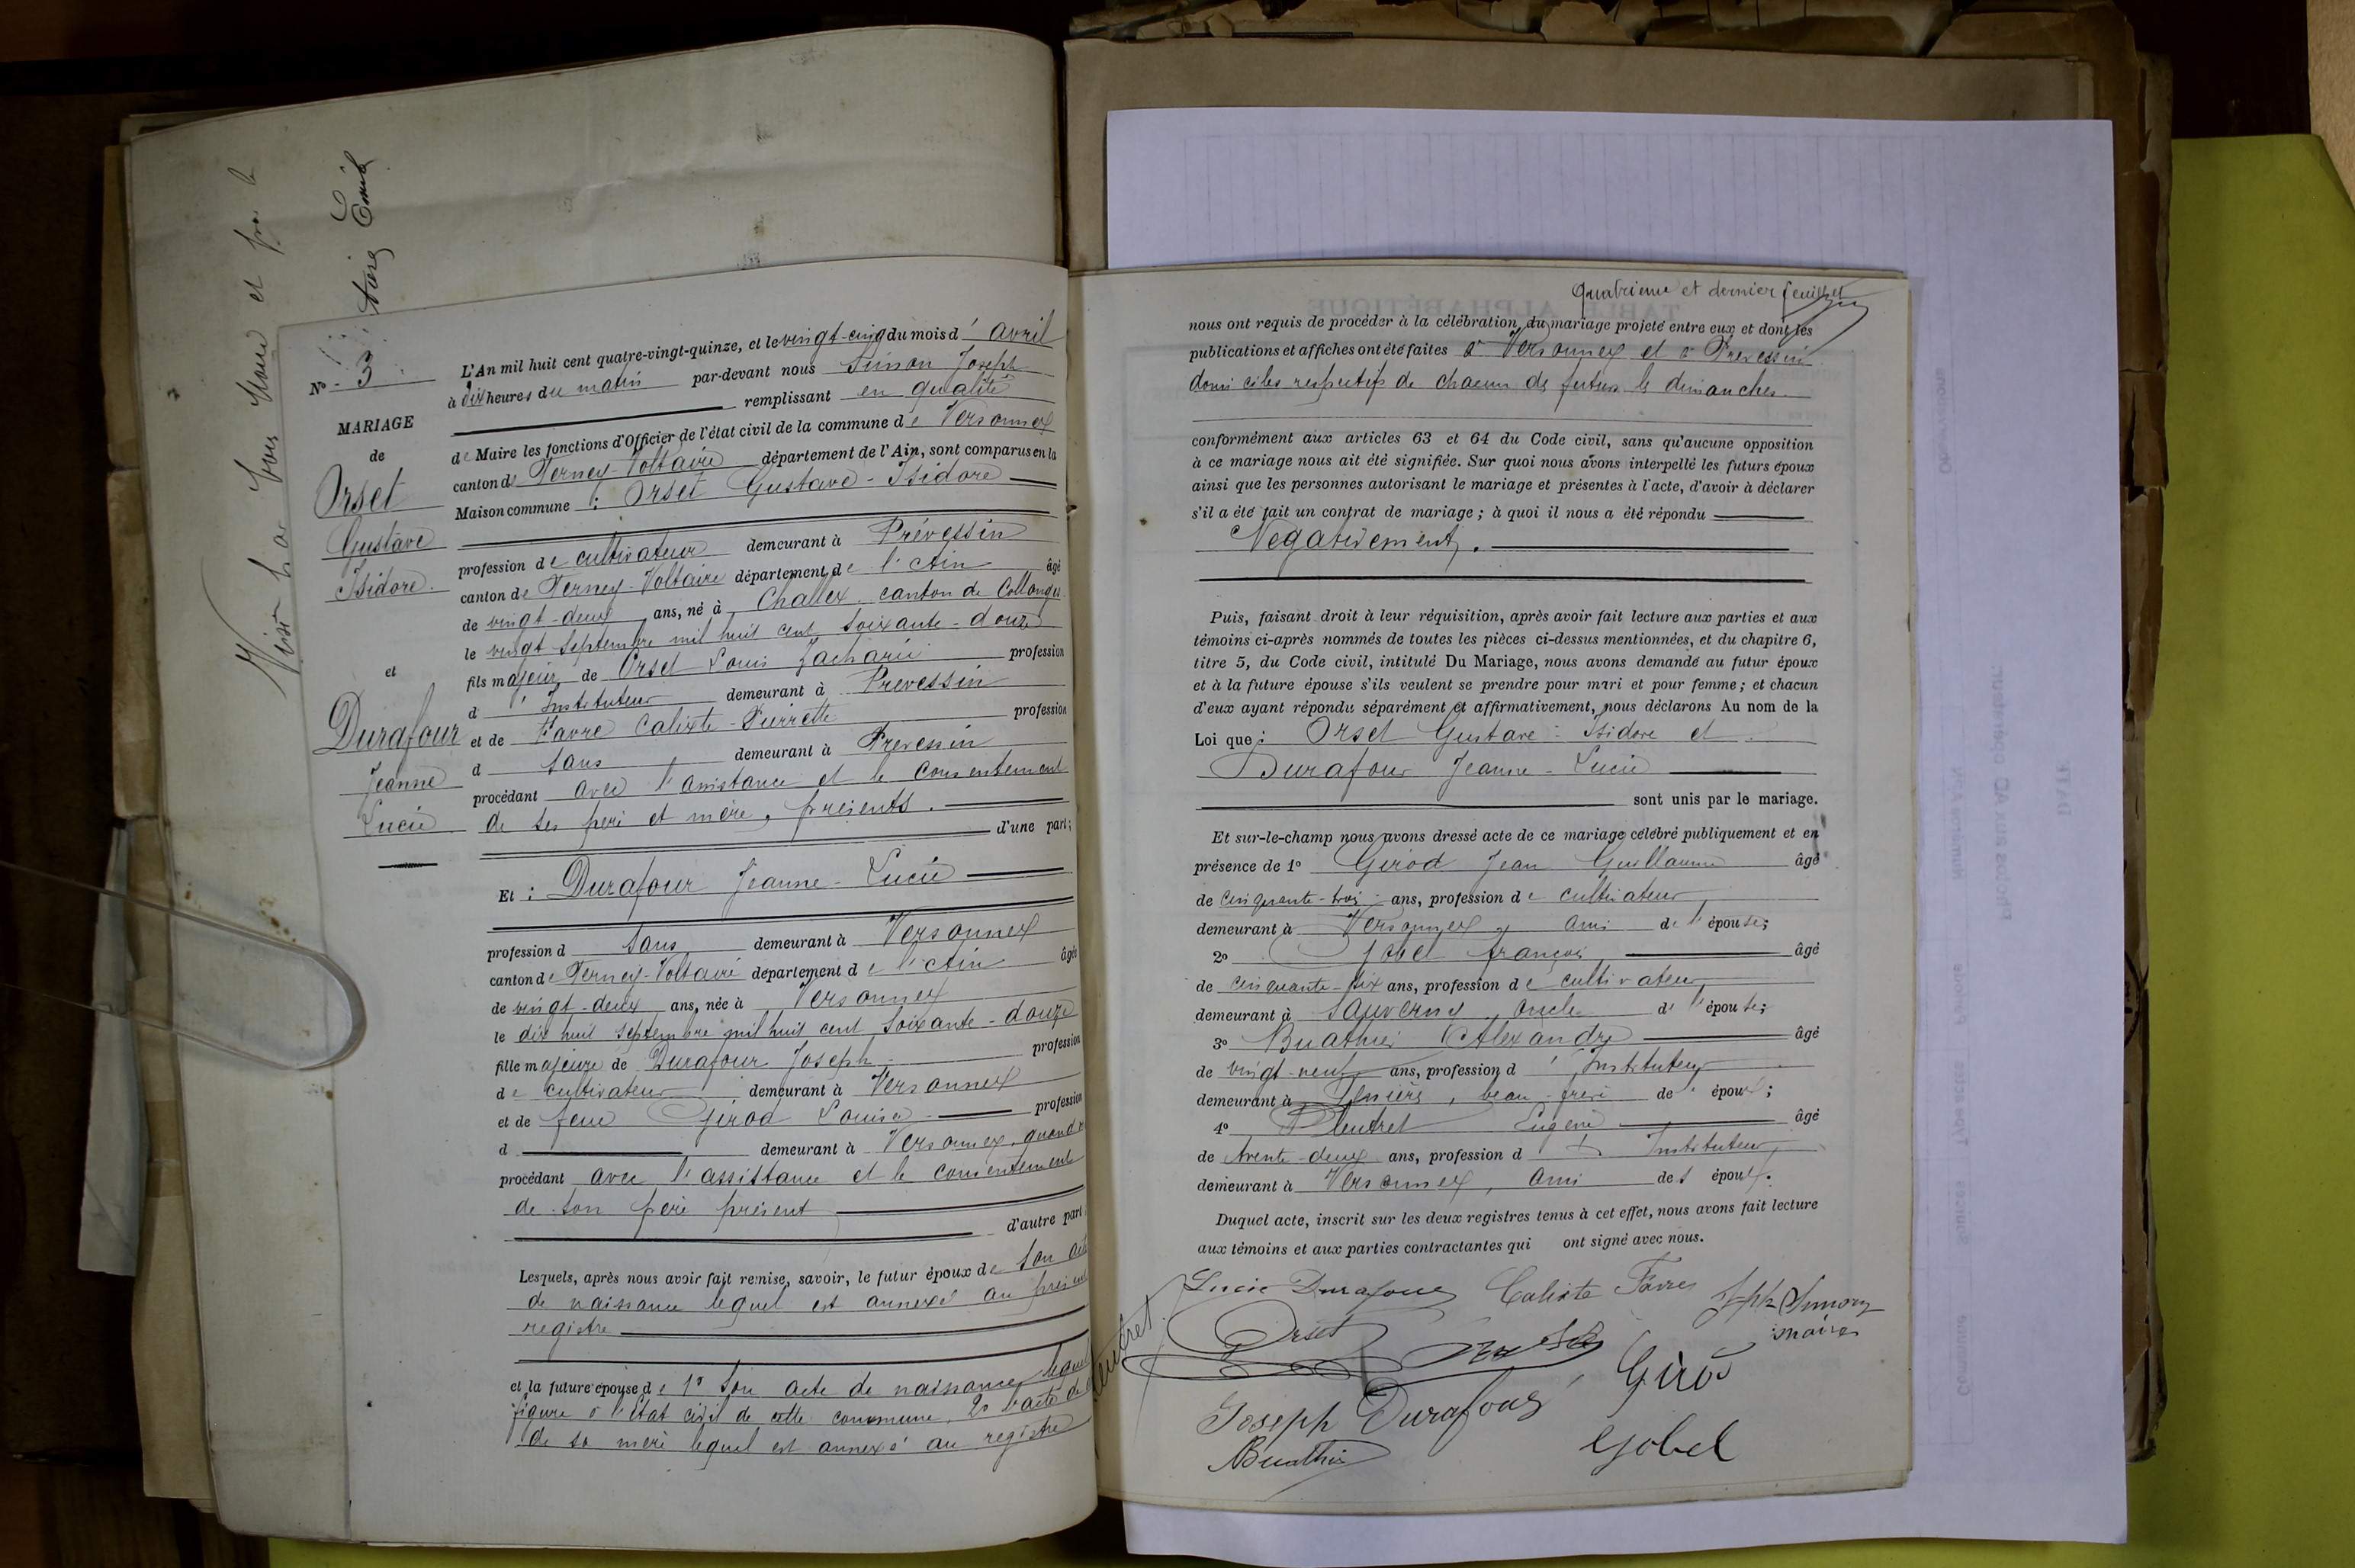 Quatrième et dernier feuillet
N° 3
MARIAGE
de
Orset
Gustave
Isidore
et
Durafour
Jeanne
Lucie
L'An mil huit cent quatre-vingt-quinze, et le vingt-cinq du mois d' avril
à dix heures du matin par-devant nous Simon Joseph
remplissant en qualité
de Maire les fonctions d'Officier de l'état civil de la commune de Versonnex
canton de Ferney-Voltaire département de l'Ain, sont comparus en la
Maison commune : Orset Gustave-Isidore
profession de cultivateur demeurant à Prévessin
canton de Ferney-Voltaire département de l'Ain âgé
de vingt-deux ans, né à Challex canton de Collonges
le vingt septembre mil huit cent soixante-douze
fils majeur de Orset Louis Zacharie profession
d' Instituteur demeurant à Prevessin
et de Favre Calixte-Pierrette profession
d sans demeurant à Prevessin
procédant avec l'assistance et le consentement
de ses père et mère, présents.
d'une part;
Et : Durafour Jeanne-Lucie
profession d sans demeurant à Versonnex
canton de Ferney-Voltaire département de l'Ain âgée
de vingt-deux ans, née à Versonnex
le dix huit septembre mil huit cent soixante-douze
fille majeure de Durafour Joseph profession
de cultivateur demeurant à Versonnex
et de feue Girod Louise profession
d demeurant à Versonnex, quand
procédant avec l'assistance et le consentement
de son père présent
d'autre part
Lesquels, après nous avoir fait remise, savoir, le futur époux de son acte
de naissance lequel est annexé au présent
registre
et la future épouse de 1° son acte de naissance lequel
figure à l'Etat civil de cette commune, 2° l'acte de
de sa mère lequel est annexé au registre
nous ont requis de procéder à la célébration du mariage projeté entre eux et dont les
publications et affiches ont été faites à Versonnex et à Prevessin
domiciles respectifs de chacun des futurs le dimanches
conformément aux articles 63 et 64 du Code civil, sans qu'aucune opposition
à ce mariage nous ait été signifiée. Sur quoi nous avons interpellé les futurs époux
ainsi que les personnes autorisant le mariage et présentes à l'acte, d'avoir à déclarer
s'il a été fait un contrat de mariage ; à quoi il nous a été répondu
Négativement.
Puis, faisant droit à leur réquisition, après avoir fait lecture aux parties et aux
témoins ci-après nommés de toutes les pièces ci-dessus mentionnées, et du chapitre 6,
titre 5, du Code civil, intitulé Du Mariage, nous avons demandé au futur époux
et à la future épouse s'ils veulent se prendre pour mari et pour femme ; et chacun
d'eux ayant répondu séparément et affirmativement, nous déclarons Au nom de la
Loi que : Orset Gustave-Isidore et
Durafour Jeanne-Lucie
sont unis par le mariage.
Et sur-le-champ nous avons dressé acte de ce mariage célébré publiquement et en
présence de 1° Girod Jean Guillaume âgé
de cinquante-trois ans, profession de cultivateur
demeurant à Versonnex, ami de l'épouse;
2° Gobel françois âgé
de cinquante-six ans, profession de cultivateur
demeurant à Sauverny, oncle de l'épouse;
3° Buathier Alexandre âgé
de vingt-neuf ans, profession d' Instituteur
demeurant à beau-frère de l'époux;
4° Pleutret Eugène âgé
de trente-deux ans, profession d' Instituteur
demeurant à Versonnex, ami des époux.
Duquel acte, inscrit sur les deux registres tenus à cet effet, nous avons fait lecture
aux témoins et aux parties contractantes qui ont signé avec nous.
Lucie Durafour Calixte Favre Jph Simon
maire
Orset
Girod
Joseph Durafour
Buathier
Gobel